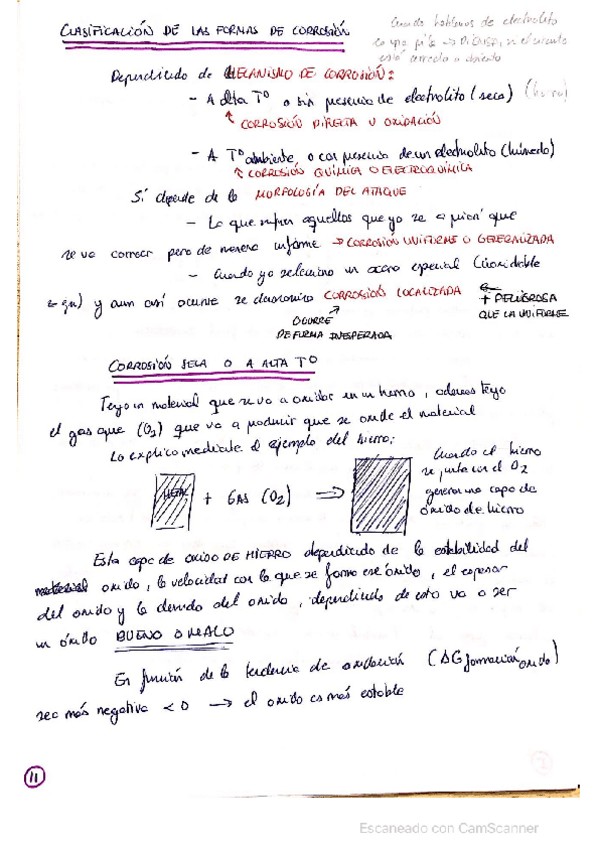 CLASIFICACIÓN DE LAS FORMAS DE CORROSIÓN
Cuando hablemos de electrolito
está correcto o abierto
Dependiendo de MECANISMO DE CORROSIÓN:
- A alta Tº o sin presencia de electrolito (seca) (horno)
↑ CORROSIÓN DIRECTA U OXIDACIÓN
- A Tº ambiente, o con presencia de un electrolito (húmedo)
↑ CORROSIÓN QUÍMICA O ELECTROQUÍMICA
Si depende de la MORFOLOGÍA DEL ATAQUE
- La que sufren aquellos que yo se a priori que
se va corroer pero de manera uniforme → CORROSIÓN UNIFORME O GENERALIZADA
- Cuando yo selecciono un acero especial (inoxidable
y aun así ocurre se denomina CORROSIÓN LOCALIZADA
+ PELIGROSA
QUE LA UNIFORME
OCURRE
DE FORMA INESPERADA
CORROSIÓN SECA O A ALTA Tº
Tengo un material que se va a oxidar en un horno, además tengo
el gas que (O₂) que va a producir que se oxide el material
Lo explico mediante el ejemplo del hierro:
METAL + GAS (O₂) →
Cuando el hierro
se junta con el O₂
genera una capa de
óxido de hierro
Esta capa de OXIDO DE HIERRO dependiendo de la estabilidad del
material oxido, la velocidad con la que se forma ese óxido, el espesor
del oxido y la densidad del oxido, dependiendo de esto va a ser
un óxido BUENO O MALO
En función de la tendencia de oxidación (ΔG formación oxido)
sea más negativa < 0 → el oxido es más estable
11
Escaneado con CamScanner